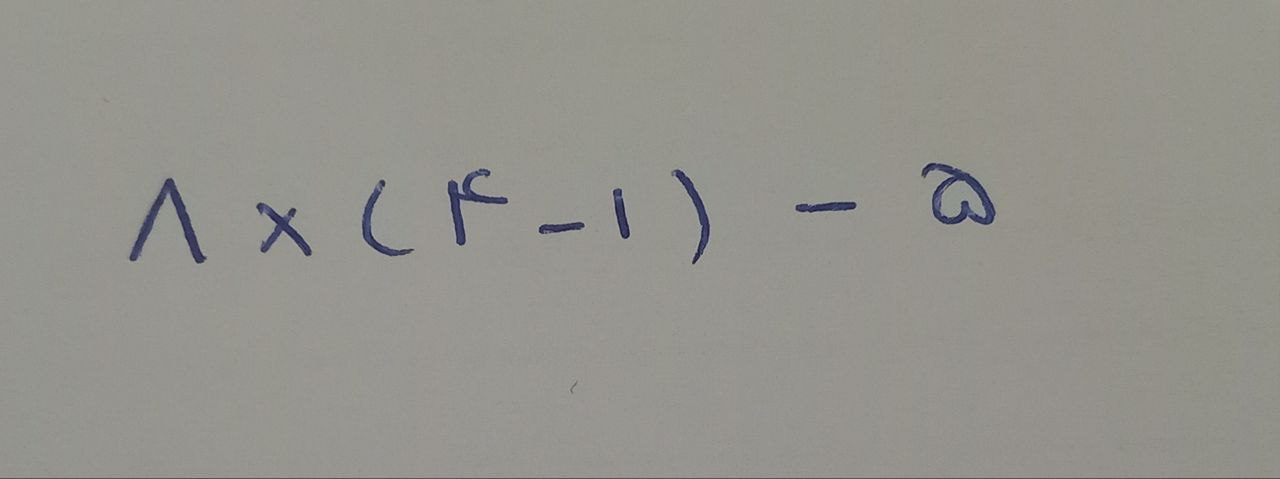 ۸ × (۴ - ۱) - ۵